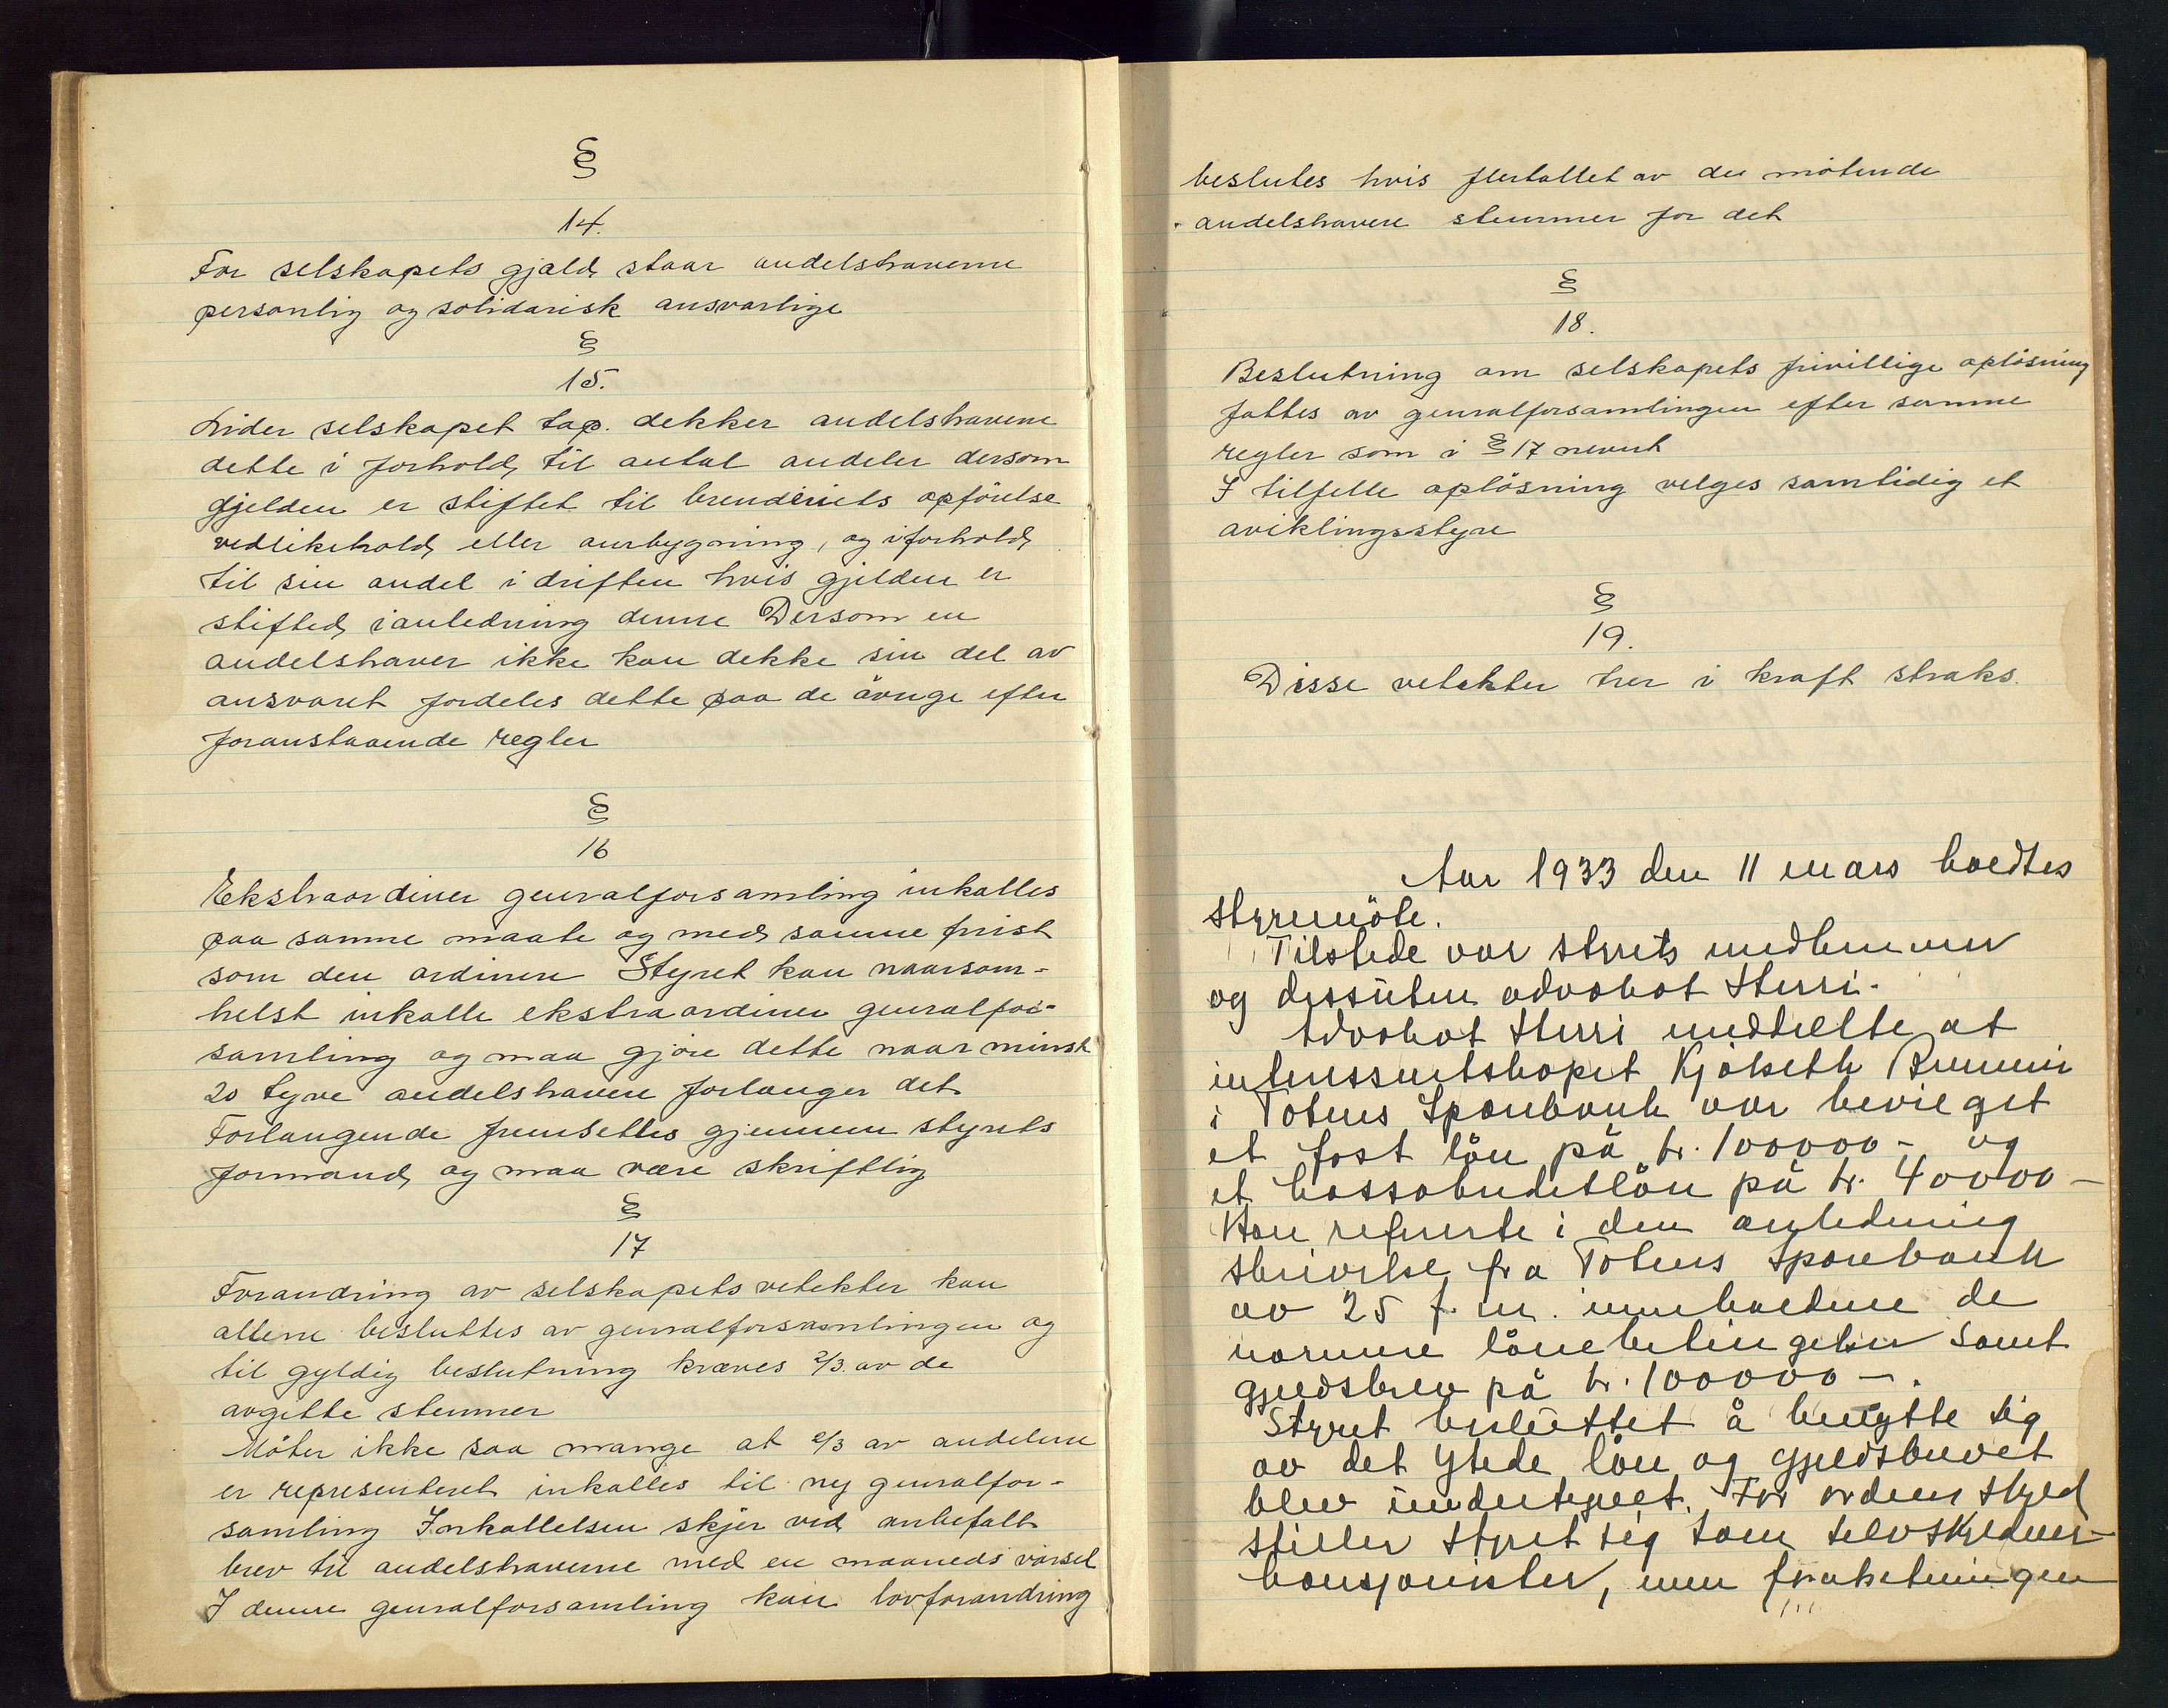 §
14.
For selskapets gjæld staar andelshaverne
personlig og solidarisk ansvarlige
§
15.
Lider selskapet tap. dekker andelshaverne
dette i forhold til antal andeler dersom
gjelden er stiftet til brenderiets opförelse
vedlikehold eller ombygning, og i forhold
til sin andel i driften hvis gjelden er
stifted i anledning denne Dersom en
andelshaver ikke kan dekke sin del av
ansvaret fordeles dette paa de övrige efter
foranstaaende regler
§
16
Ekstraordiner generalforsamling inkalles
paa samme maate og med samme frist
som den ordinere Styret kan naarsom-
helst inkalle ekstraordiner generalfor-
samling og maa gjöre dette naar minst
20 tyve andelshavere forlanger det
Forlangende fremsettes gjennem styrets
formand og maa være skriftlig
§
17
Forandring av selskapets vetekter kan
allene besluttes av generalforsamlingen og
til gyldig beslutning kræves 2/3. av de
avgitte stemmer
Möter ikke saa mange at 2/3 av andelene
er representeret inkalles til ny generalfor-
samling Inkallelsen skjer ved anbefalt
brev til andelshaverne med en maaneds varsel
I denne generalforsamling kan lovforandring
beslutes hvis flertallet av de mötende
andelshavere stemmer for det
§
18.
Beslutning om selskapets frivillige oplösning
fattes av generalforsamlingen efter samme
regler som i § 17 nevnt
I tilfelle oplösning velges samtidig et
aviklingsstyre
§
19.
Disse vetekter trer i kraft straks.
Aar 1933 den 11 mars holdtes
styremöte.
Tilstede var styrets medlemmer
og dessuten advokat Sterri.
Advokat Sterri meddelte at
interessentskapet Kjölseth Brenneri
i Totens Sparebank var bevilget
et fast lån på kr. 100000 - og
et kassakreditlån på kr. 40000 -
Han refererte i den anledning
skrivelse fra Totens Sparebank
av 25 f. m. inneholdene de
nærmere lånebetingelser samt
gjeldsbrev på kr. 100000 -.
Styret besluttet å benytte sig
av det ytede lån og gjeldsbrevet
blev undertegnet. For ordens skyld
stiller styret sig som selvskyldner-
kausjonister, men forutsetningen